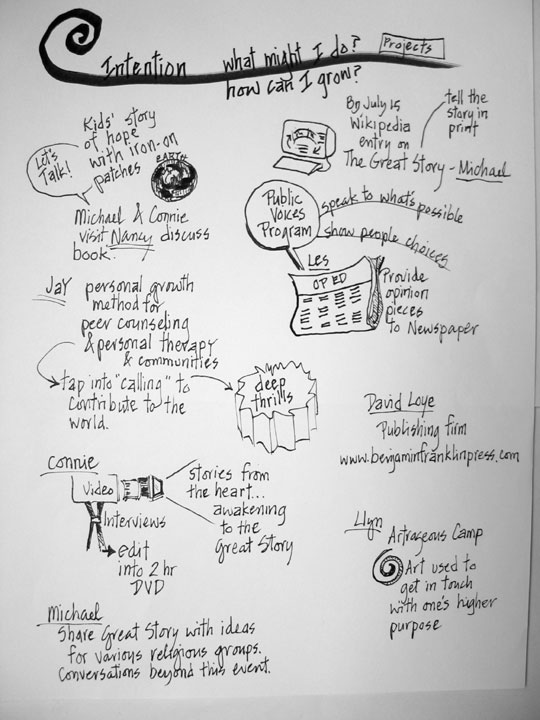 Intention
what might I do?
how can I grow?
Projects
Let's
Talk!
Kids' story
of hope
with iron-on
patches
EARTH
Michael & Connie
visit Nancy discuss
book.
By July 15
Wikipedia
entry on
The Great Story - Michael
tell the
story in
print
Public
Voices
Program
speak to what's possible
show people choices
Les
OP ED
Provide
opinion
pieces
to Newspaper
Jay
personal growth
method for
peer counseling
& personal therapy
& communities
tap into "calling" to
contribute to the
world.
deep
thrills
David Loye
Publishing firm
www.benjaminfranklinpress.com
Connie
Video
Interviews
edit
into 2 hr
DVD
stories from
the heart...
awakening
to the
Great Story
Llyn
Artrageous Camp
Art used to
get in touch
with one's higher
purpose
Michael
Share Great Story with ideas
for various religious groups.
Conversations beyond this event.